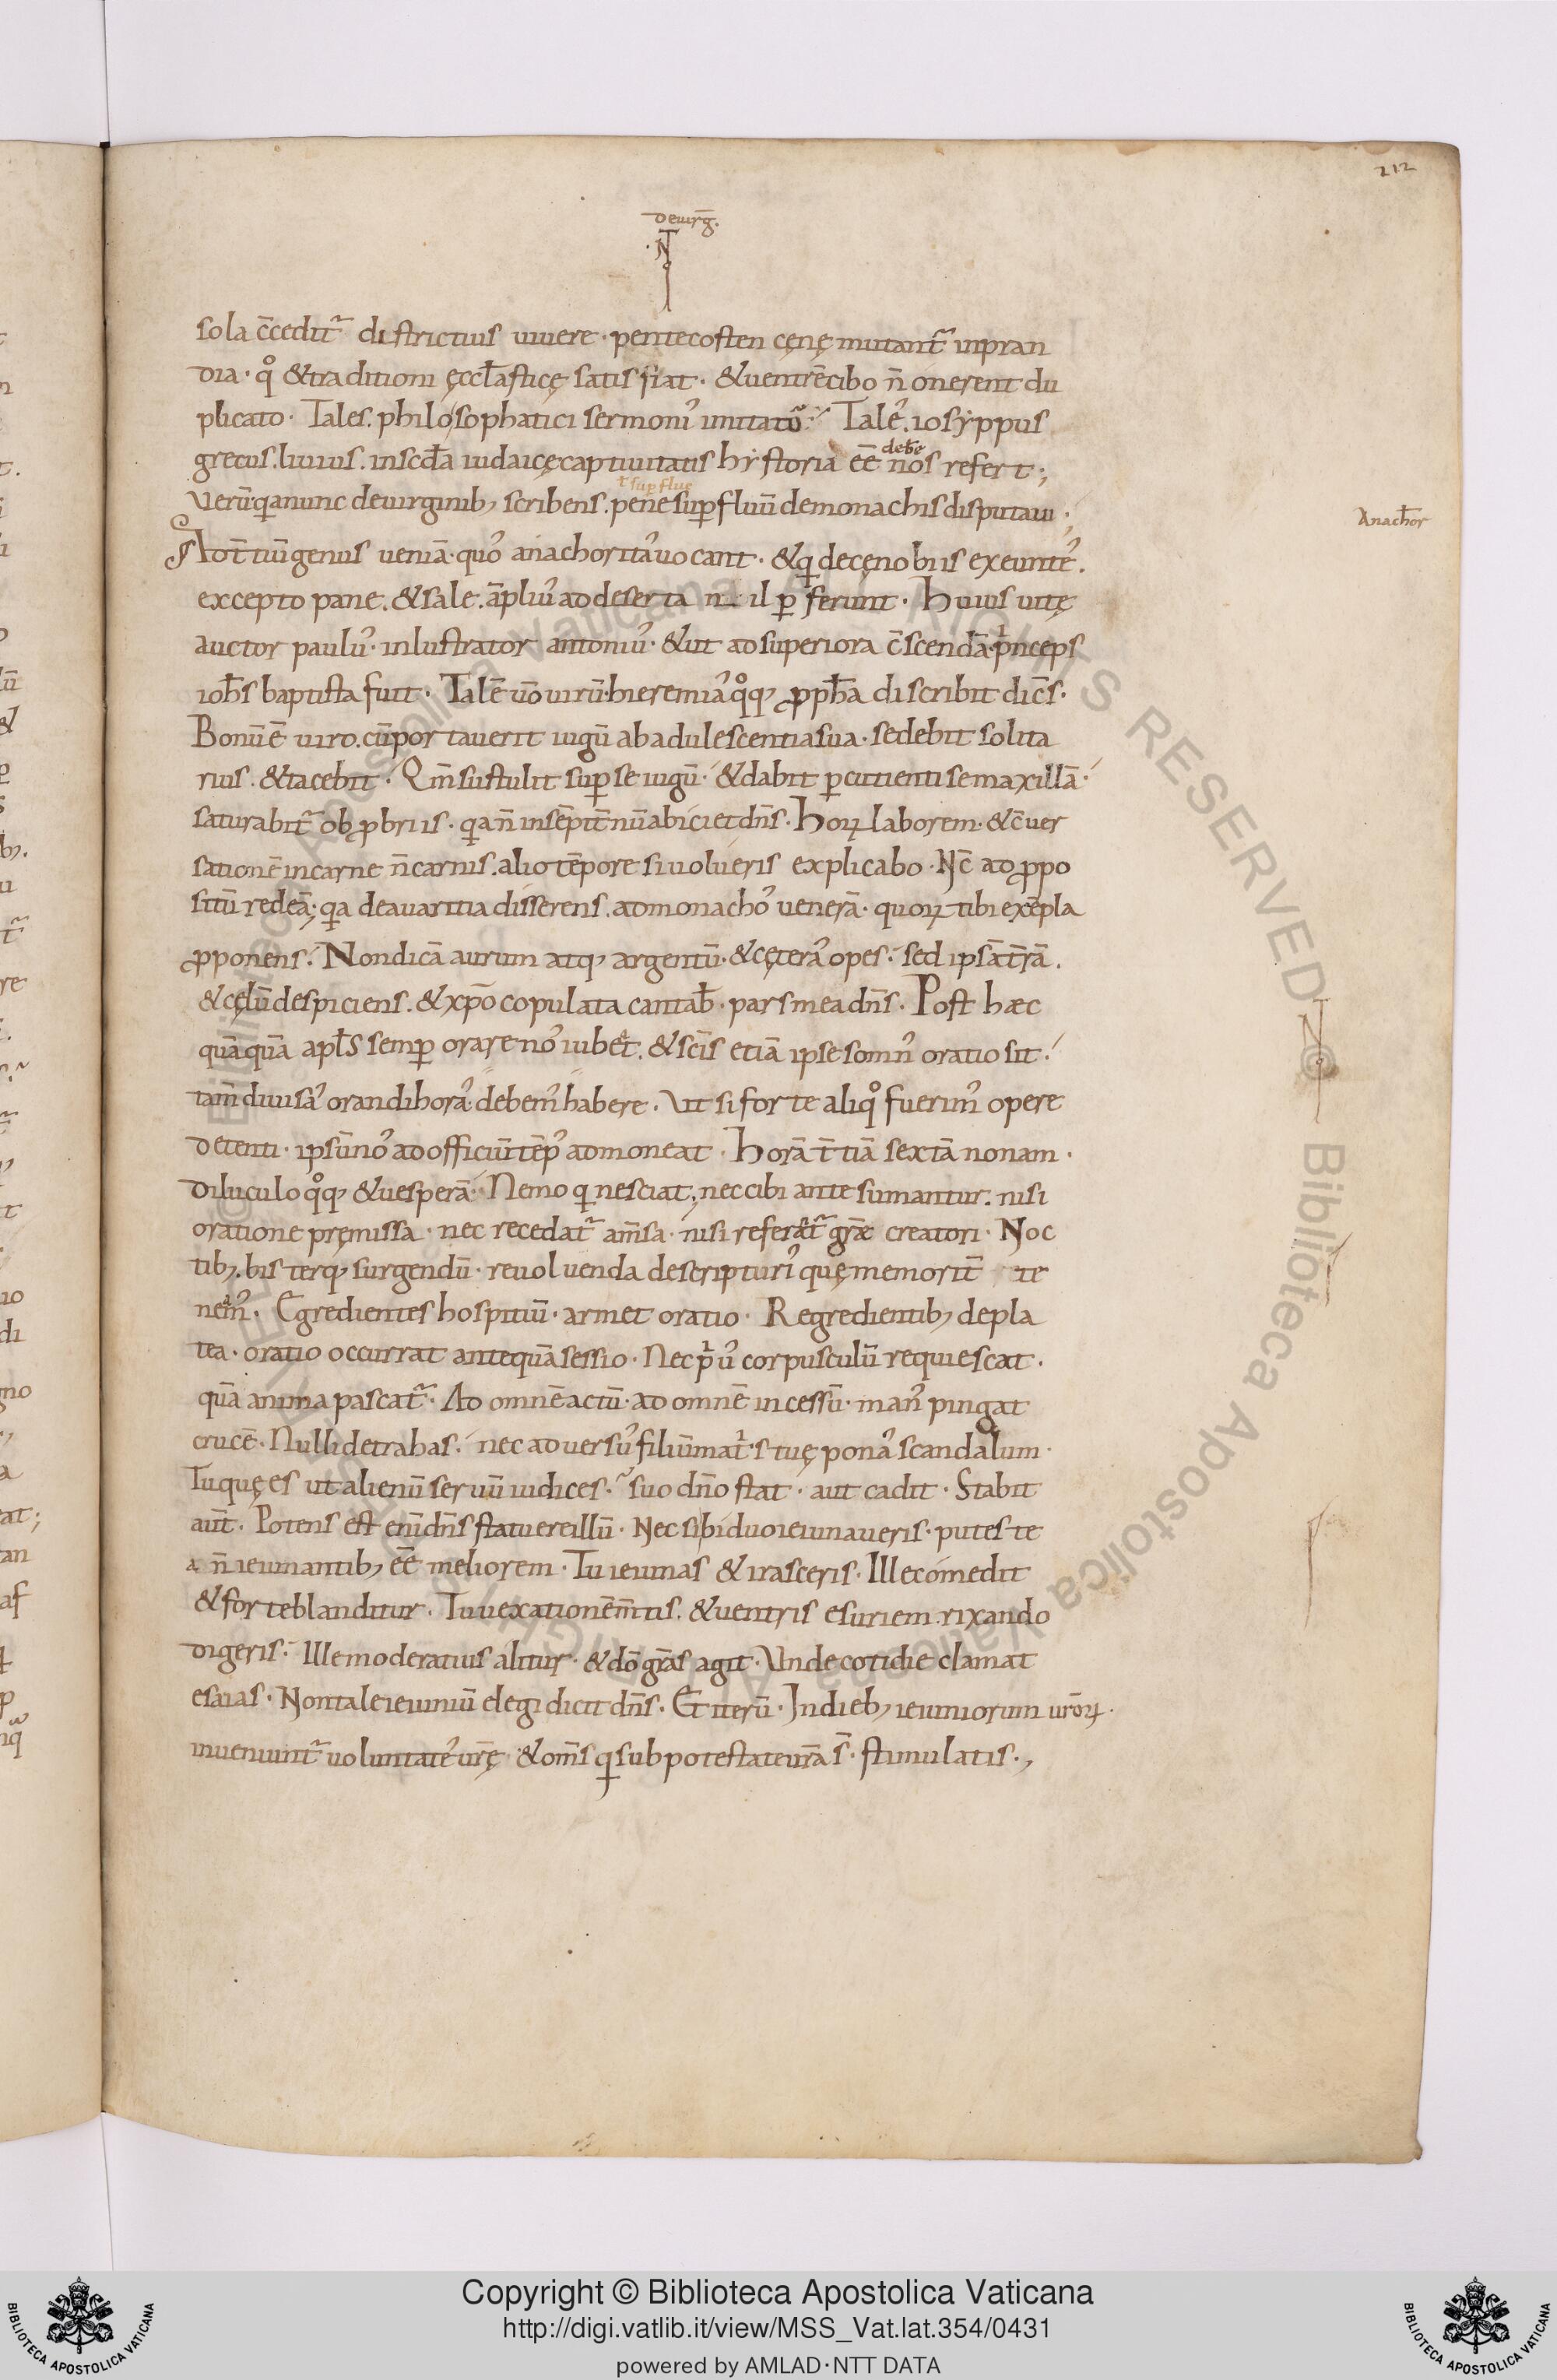 212
de uirg̅.
·N·
sola c̅cedit᷑ districtius uiuere · pentecosten cęnę mutant᷑ inpran
dia · qͦ &traditioni ęccl̅asticę satis fiat · &uentre̅ cibo n̅ onerent du
plicato · Tales. philosophatici sermonis imitatō᷑ Tales. iosyppus
grecus. liuius. in scd̅a iudaicę captiuitatis hystoria ee̅ debe̅ nos refert;
Ueru̅ qa nunc de uirginib; scribens. pene sup̱fluu̅ de monachis disputaui ·
ł sup̱flue
Anach̅or
Ad t̅tiu̅ genus uenia̅ · quos anachoritas uocant · &qi de cęnobiis exeuntes.
excepto pane. &sale. a̅plius ad deserta n il p̱ferunt · Huius uitę
auctor paulus · inlustrator antonius · &ut ad superiora c̅scenda̅ · pͥnceps
ioh̅s baptista fuit · Tale̅ uo̅ uiru̅ · hieremias qͦq; ꝓph̅a discribit dic̅s ·
Bonu̅ e̅ uiro. cu̅ portauerit iugu̅ ab adulescentia sua · sedebit solita
rius. &tacebit · Qm̅ sustulit sup̱ se iugu̅ · &dabit p̱cutienti se maxilla̅ ·
saturabit᷑ obꝓbriis · qa n̅ in se̅pit̅nu̅ abiciet dn̅s · Hoꝝ laborem · &c̅uer
satione̅ in carne n̅ carnis. alio te̅pore si uolueris explicabo · Nc̅ ad ꝓpo
situ̅ redea̅; qa de auaritia disserens. ad monachos uenera̅ · quoꝝ tibi exe̅pla
ꝓponens. Non dica̅ aurum atq; argentu̅ · &cęteras opes. sed ipsa̅ t̅ra̅.
&cęlu̅ despiciens. &xp̅o copulata cantab̅ · pars mea dn̅s · Post hæc
qua̅qua̅ apl̅s semp̱ orare nos iubet. &sc̅is etia̅ ipse somnus oratio sit.
tam̅ diuisas orandi horas debemus habere. Ut si forte aliqͦ fuerimus opere
detenti · ipsu̅ nos ad officiu̅ te̅pus admoneat · Hora̅ t̅tia̅ sexta̅ nonam ·
Diluculo qͦq; &uespera̅. Nemo qi nesciat, nec cibi ante sumantur. nisi
oratione pręmissa · nec recedat᷑ a m̅sa · nisi referat᷑ gr̅æ creatori · Noc
tib;. bis terq; surgendu̅ · reuoluenda de scripturis quę memorit̅ te
nemus. Egredientes hospitiu̅ · armet oratio · Regredientib; de pla
tea · oratio occurrat antequa̅ sessio · Nec pͥus corpusculu̅ requiescat ·
qua̅ anima pascat᷑ · Ad omne̅ actu̅ · ad omne̅ incessu̅ · manus pingat
cruce̅ · Nulli detrahas. nec aduersus filiu̅ matͥs tuę ponas scandalum ·
Tu quę es ut alienu̅ seruu̅ iudices · suo dn̅o stat · aut cadit · Stabit
aut̅. Potens est eni̅ dn̅s statuere illu̅ · Nec si biduo ieiunaueris · putes te
a n̅ ieiunantib; ee̅ meliorem · Tu ieiunas &irasceris · Ille comedit
&forte blanditur. Tu uexatione̅ m̅tis. &uentris esuriem. rixando
digeris. Ille moderatius alitur · &do̅ gr̅as agit · Unde cotidie clamat
esaias · Non tale ieiuniu̅ elegi dicit dn̅s · Et iteru̅ · In dieb; ieiuniorum ur̅oꝝ ·
inueniunt᷑ uoluntates ur̅ę &om̅s qi sub potestate ur̅a s̅ · stimulatis ·,
Copyright © Biblioteca Apostolica Vaticana
http://digi.vatlib.it/view/MSS_Vat.lat.354/0431
powered by AMLAD·NTT DATA